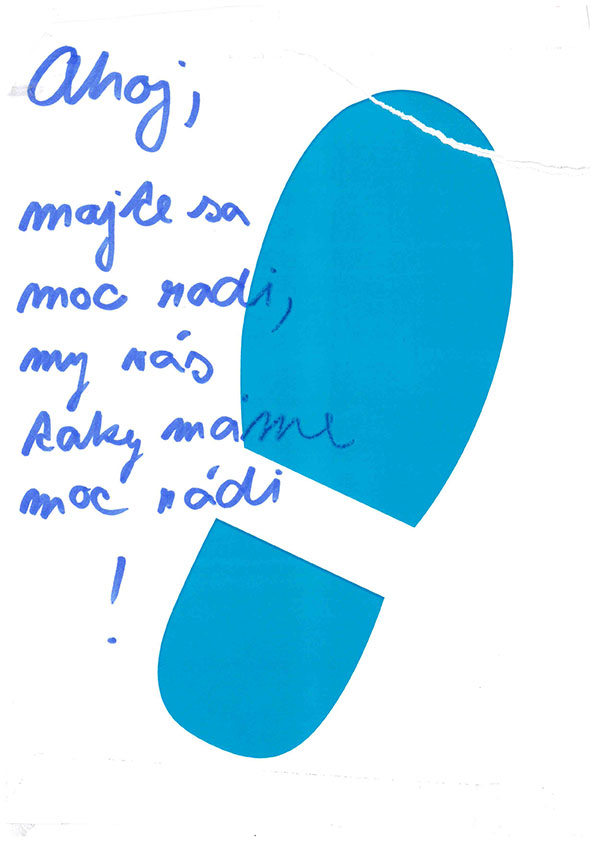 Ahoj,
majte sa
moc radi,
my vás
taky máme
moc rádi
!